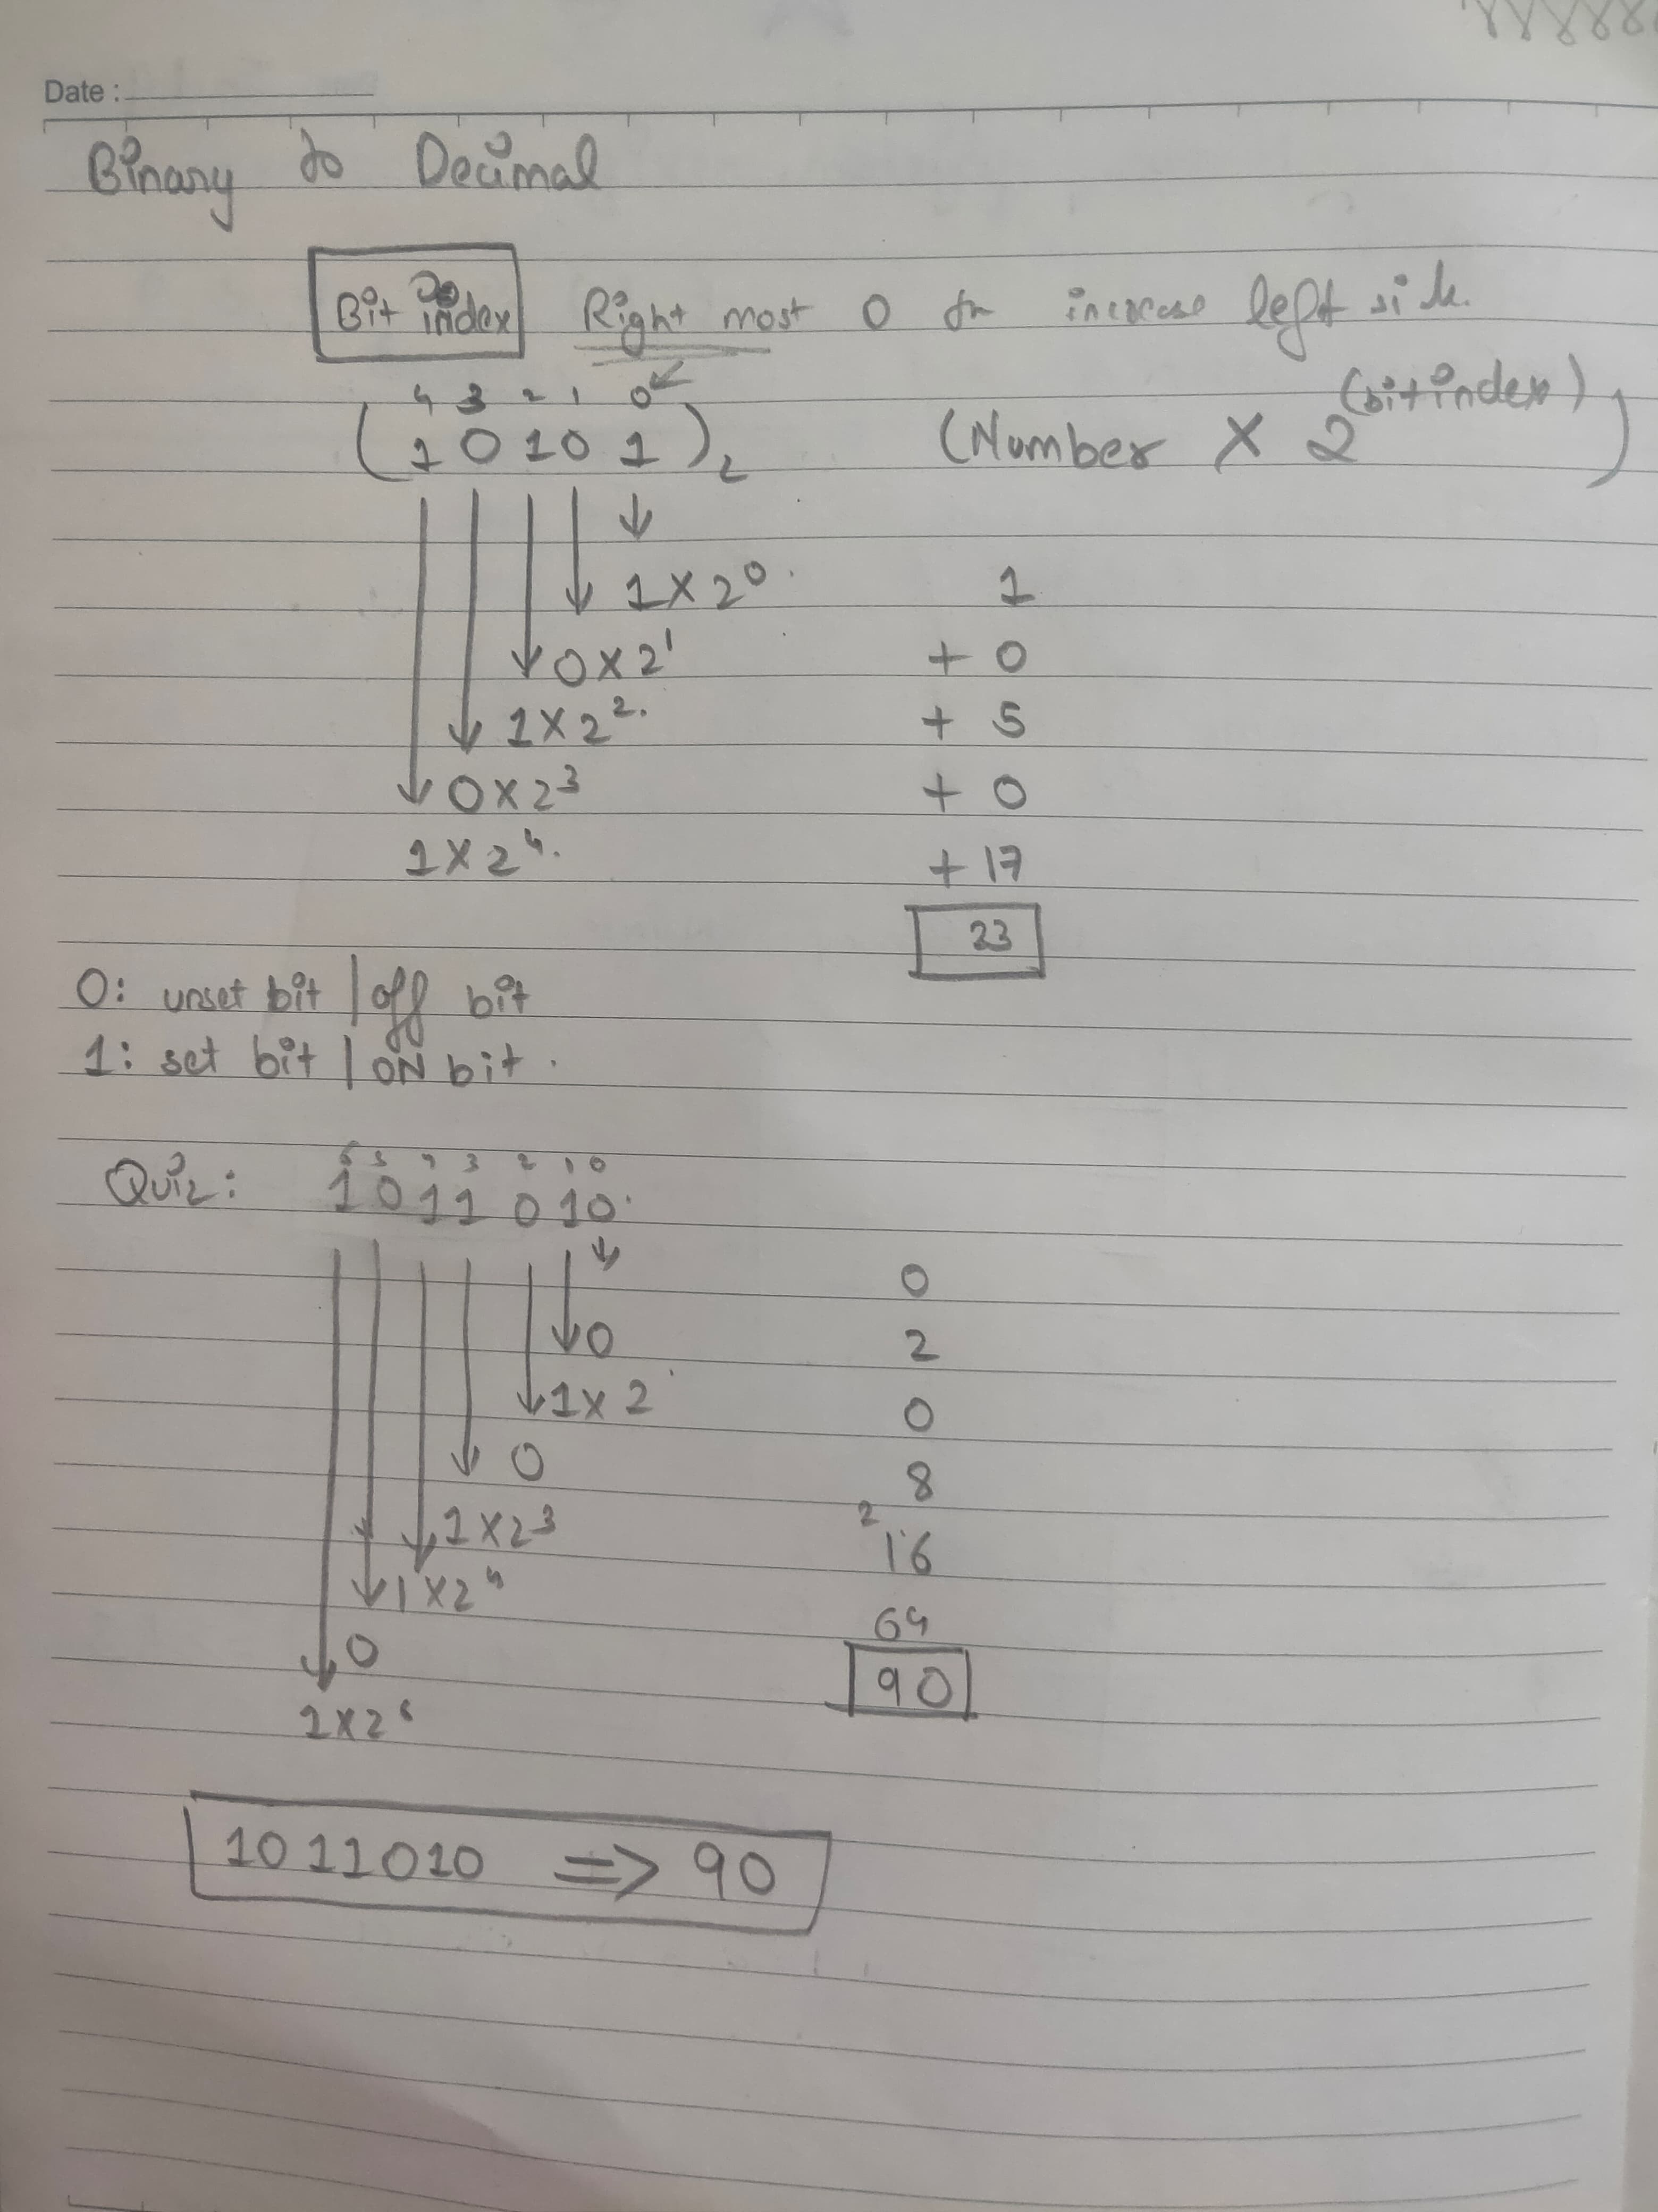 Date :
Binary to Decimal
Bit index Right most 0 increase left side.
4 3 2 1 0
(1 0 1 0 1)₂ (Number X 2^(bit index))
1 X 2⁰ 1
0 X 2¹ + 0
1 X 2². + 5
0 X 2³ + 0
1 X 2⁴. + 17
23
0: unset bit | off bit
1: set bit | ON bit.
6 5 4 3 2 1 0
Quiz: 1 0 1 1 0 1 0.
0
0 2
1 X 2 0
0 8
2
1 X 2³ 16
1 X 2⁴ 64
0 90
1 X 2⁶
1011010 => 90